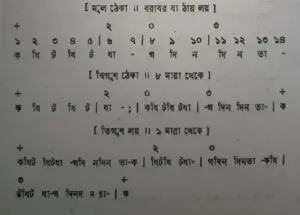 [ মূল ঠেকা ॥ বরাবর বা ঠায় লয় ]
+ ২ ০ ৩
১ ২ ৩ ৪ ৫ | ৬ ৭ | ৮ ৯ ১০ | ১১ ১২ ১৩ ১৪
ক ধি ট ধি ট ধা - | গ দি ন দি ন তা -
[ দ্বিগুণ ঠেকা ॥ ৮ মাত্রা থেকে ]
+ ২ ০ ৩ +
ক ধি ট ধি ট | ধা - ; | কধি টধি টধা | -গ দিন দিন তা- | ক
[ তিগুণ লয় ॥ ১ মাত্রা থেকে ]
+ ২ ০
কধিট ধিটধা -গদি নদিন তা-ক | ধিটধি টধা- | গদিন দিনতা -কধি |
৩ +
টধিট ধা-গ দিনদি নতা- | ক